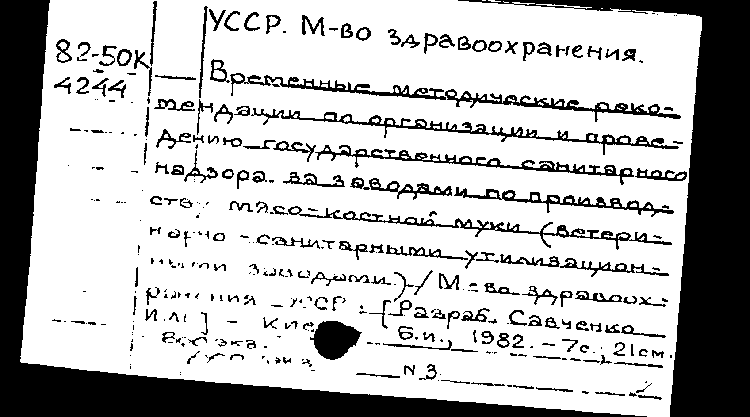 УССР. М-во здравоохранения.
82-50К
4244
Временные методические реко-
мендации по организации и прове-
дению государственного санитарного
надзора за заводами по производ-
ству мясо-костной муки (ветери-
нарно-санитарными утилизацион-
ными заводами) / М-во здравоох-
ранения УССР; [Разраб. Савченко
И.И.] - Кие
Б.и., 1982. - 7с.; 21см.
N 3